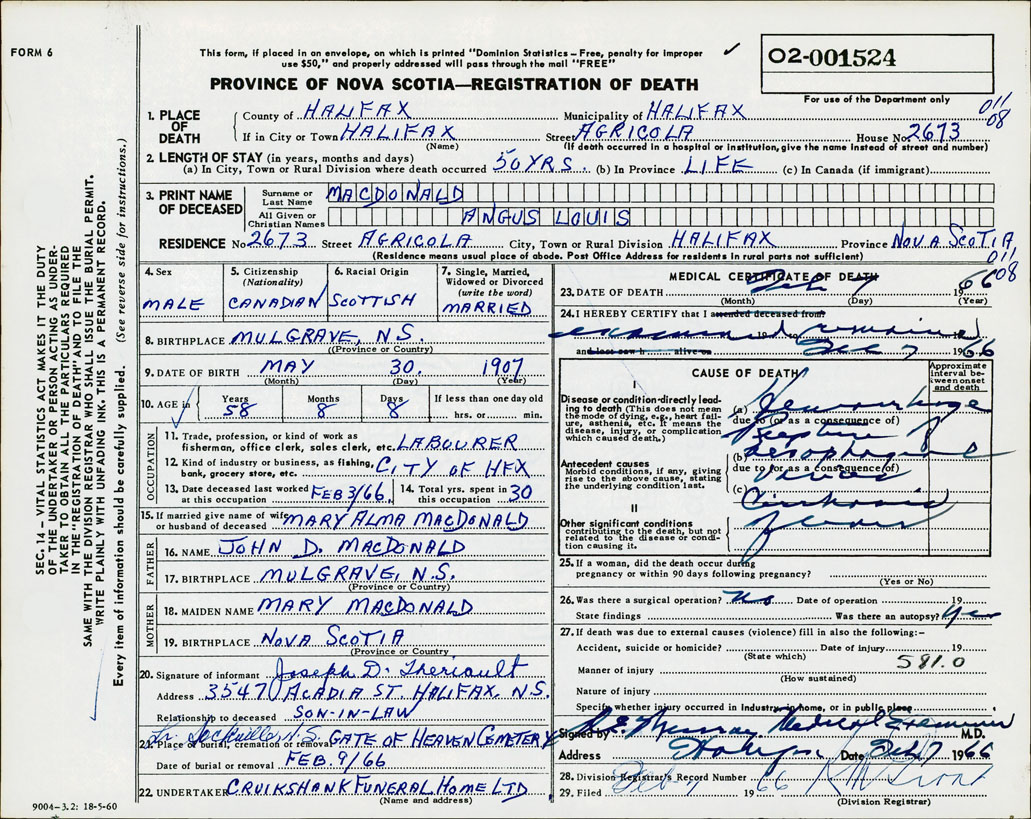 FORM 6
This form, if placed in an envelope, on which is printed "Dominion Statistics – Free, penalty for improper
use $50," and properly addressed will pass through the mail "FREE"
PROVINCE OF NOVA SCOTIA—REGISTRATION OF DEATH
02-001524
For use of the Department only
011/08
SEC. 14 – VITAL STATISTICS ACT MAKES IT THE DUTY
OF THE UNDERTAKER OR PERSON ACTING AS UNDER-
TAKER TO OBTAIN ALL THE PARTICULARS REQUIRED
IN THE "REGISTRATION OF DEATH" AND TO FILE THE
SAME WITH THE DIVISION REGISTRAR WHO SHALL ISSUE THE BURIAL PERMIT.
WRITE PLAINLY WITH UNFADING INK. THIS IS A PERMANENT RECORD.
Every item of information should be carefully supplied. (See reverse side for instructions.)
1. PLACE OF DEATH
County of HALIFAX Municipality of HALIFAX
If in City or Town HALIFAX Street AGRICOLA House No. 2673
(Name) (If death occurred in a hospital or institution, give the name instead of street and number)
2. LENGTH OF STAY (in years, months and days)
(a) In City, Town or Rural Division where death occurred 50 YRS. (b) In Province LIFE (c) In Canada (if immigrant)
3. PRINT NAME OF DECEASED
Surname or Last Name MACDONALD
All Given or Christian Names ANGUS LOUIS
RESIDENCE No 2673 Street AGRICOLA City, Town or Rural Division HALIFAX Province NOVA SCOTIA
(Residence means usual place of abode. Post Office Address for residents in rural parts not sufficient)
011/08
4. Sex MALE
5. Citizenship (Nationality) CANADIAN
6. Racial Origin SCOTTISH
7. Single, Married, Widowed or Divorced (write the word) MARRIED
8. BIRTHPLACE MULGRAVE, N.S.
(Province or Country)
9. DATE OF BIRTH MAY 30. 1907
(Month) (Day) (Year)
10. AGE in Years 58 Months 8 Days 8 If less than one day old
hrs. or min.
OCCUPATION
11. Trade, profession, or kind of work as
fisherman, office clerk, sales clerk, etc. LABOURER
12. Kind of industry or business, as fishing,
bank, grocery store, etc. CITY OF HFX
13. Date deceased last worked at this occupation FEB 3/66 14. Total yrs. spent in this occupation 30
15. If married give name of wife
or husband of deceased MARY ALMA MACDONALD
FATHER
16. NAME JOHN D. MACDONALD
17. BIRTHPLACE MULGRAVE, N.S.
(Province or Country)
MOTHER
18. MAIDEN NAME MARY MACDONALD
19. BIRTHPLACE NOVA SCOTIA
(Province or Country)
20. Signature of informant Joseph D. Theriault
Address 3547 ACADIA ST. HALIFAX, N.S.
Relationship to deceased SON-IN-LAW
21. Place of burial, cremation or removal Sackville N.S. GATE OF HEAVEN CEMETERY
Date of burial or removal FEB. 9/66
22. UNDERTAKER CRUIKSHANK FUNERAL HOME LTD
(Name and address)
9004–3.2: 18-5-60
MEDICAL CERTIFICATE OF DEATH
23. DATE OF DEATH Feb 7 1966
(Month) (Day) (Year)
24. I HEREBY CERTIFY that I attended deceased from
examined 19 19 remains
and last saw h alive on Feb 7 1966
CAUSE OF DEATH
Approximate interval between onset and death
I
Disease or condition directly lead-
ing to death (This does not mean
the mode of dying, e.g., heart fail-
ure, asthenia, etc. It means the
disease, injury, or complication
which caused death.)
(a) Hemorrhage
due to (or as a consequence of)
Rupture of
Antecedent causes
Morbid conditions, if any, giving
rise to the above cause, stating
the underlying condition last.
(b) Oesophageal
due to (or as a consequence of)
(c)
II
Other significant conditions
contributing to the death, but not
related to the disease or condi-
tion causing it.
Cirrhosis
of liver
25. If a woman, did the death occur during
pregnancy or within 90 days following pregnancy?
(Yes or No)
26. Was there a surgical operation? No Date of operation 19
State findings Was there an autopsy? Yes
27. If death was due to external causes (violence) fill in also the following:–
Accident, suicide or homicide? Date of injury 19
(State which)
581.0
Manner of injury
(How sustained)
Nature of injury
Specify whether injury occurred in industry, in home, or in public place
Signed by Murray Medical Examiner M.D.
Address Date Feb 7 1966
28. Division Registrar's Record Number
29. Filed Feb 7 1966
(Division Registrar)